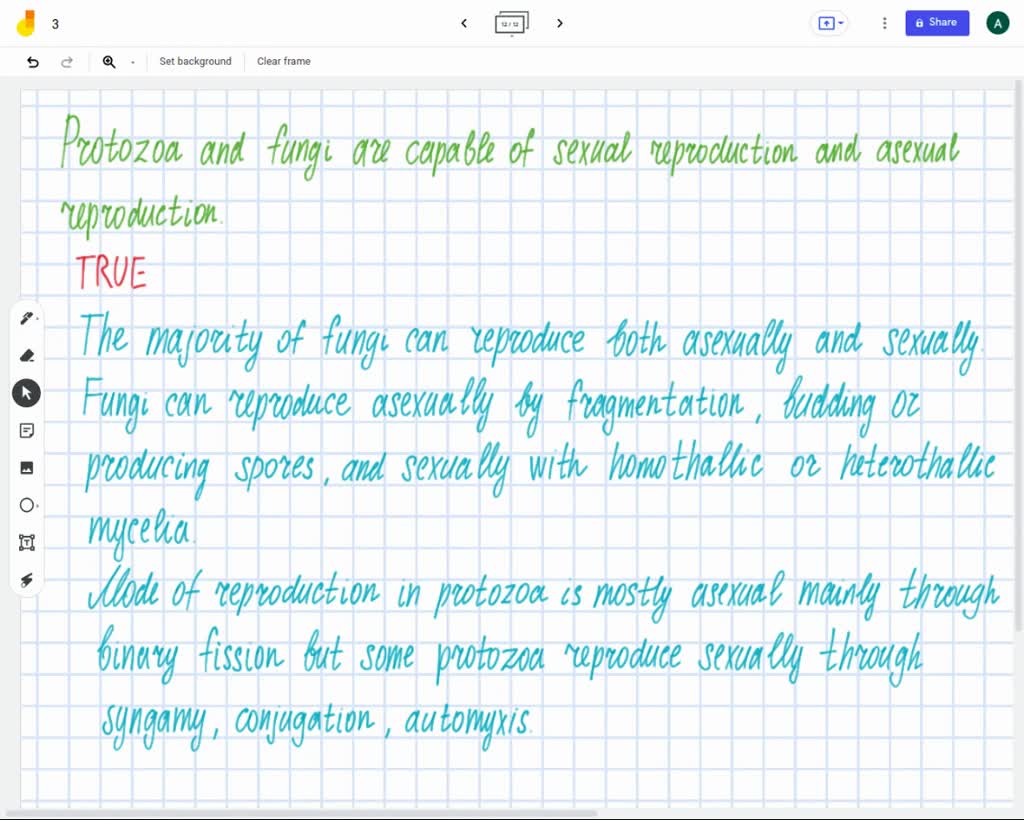 3
12 / 12
Share
A
Set background
Clear frame
Protozoa and fungi are capable of sexual reproduction and asexual
reproduction.
TRUE
The majority of fungi can reproduce both asexually and sexually.
Fungi can reproduce asexually by fragmentation, budding or
producing spores, and sexually with homothallic or heterothallic
mycelia.
Mode of reproduction in protozoa is mostly asexual mainly through
binary fission but some protozoa reproduce sexually through
syngamy, conjugation, automyxis.